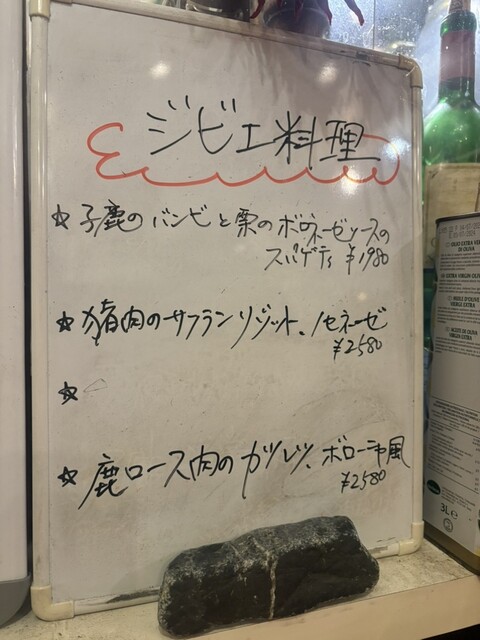 ジビエ料理
☆子鹿のバンビと栗のボロネーゼソースの
スパゲティ ¥1980
☆猪肉のサフランリゾット、ノセネーゼ
¥2580
☆
☆鹿ロース肉のカツレツ、ボローニャ風
¥2580
EXTRA VIRGIN OLIVE OIL
3L e